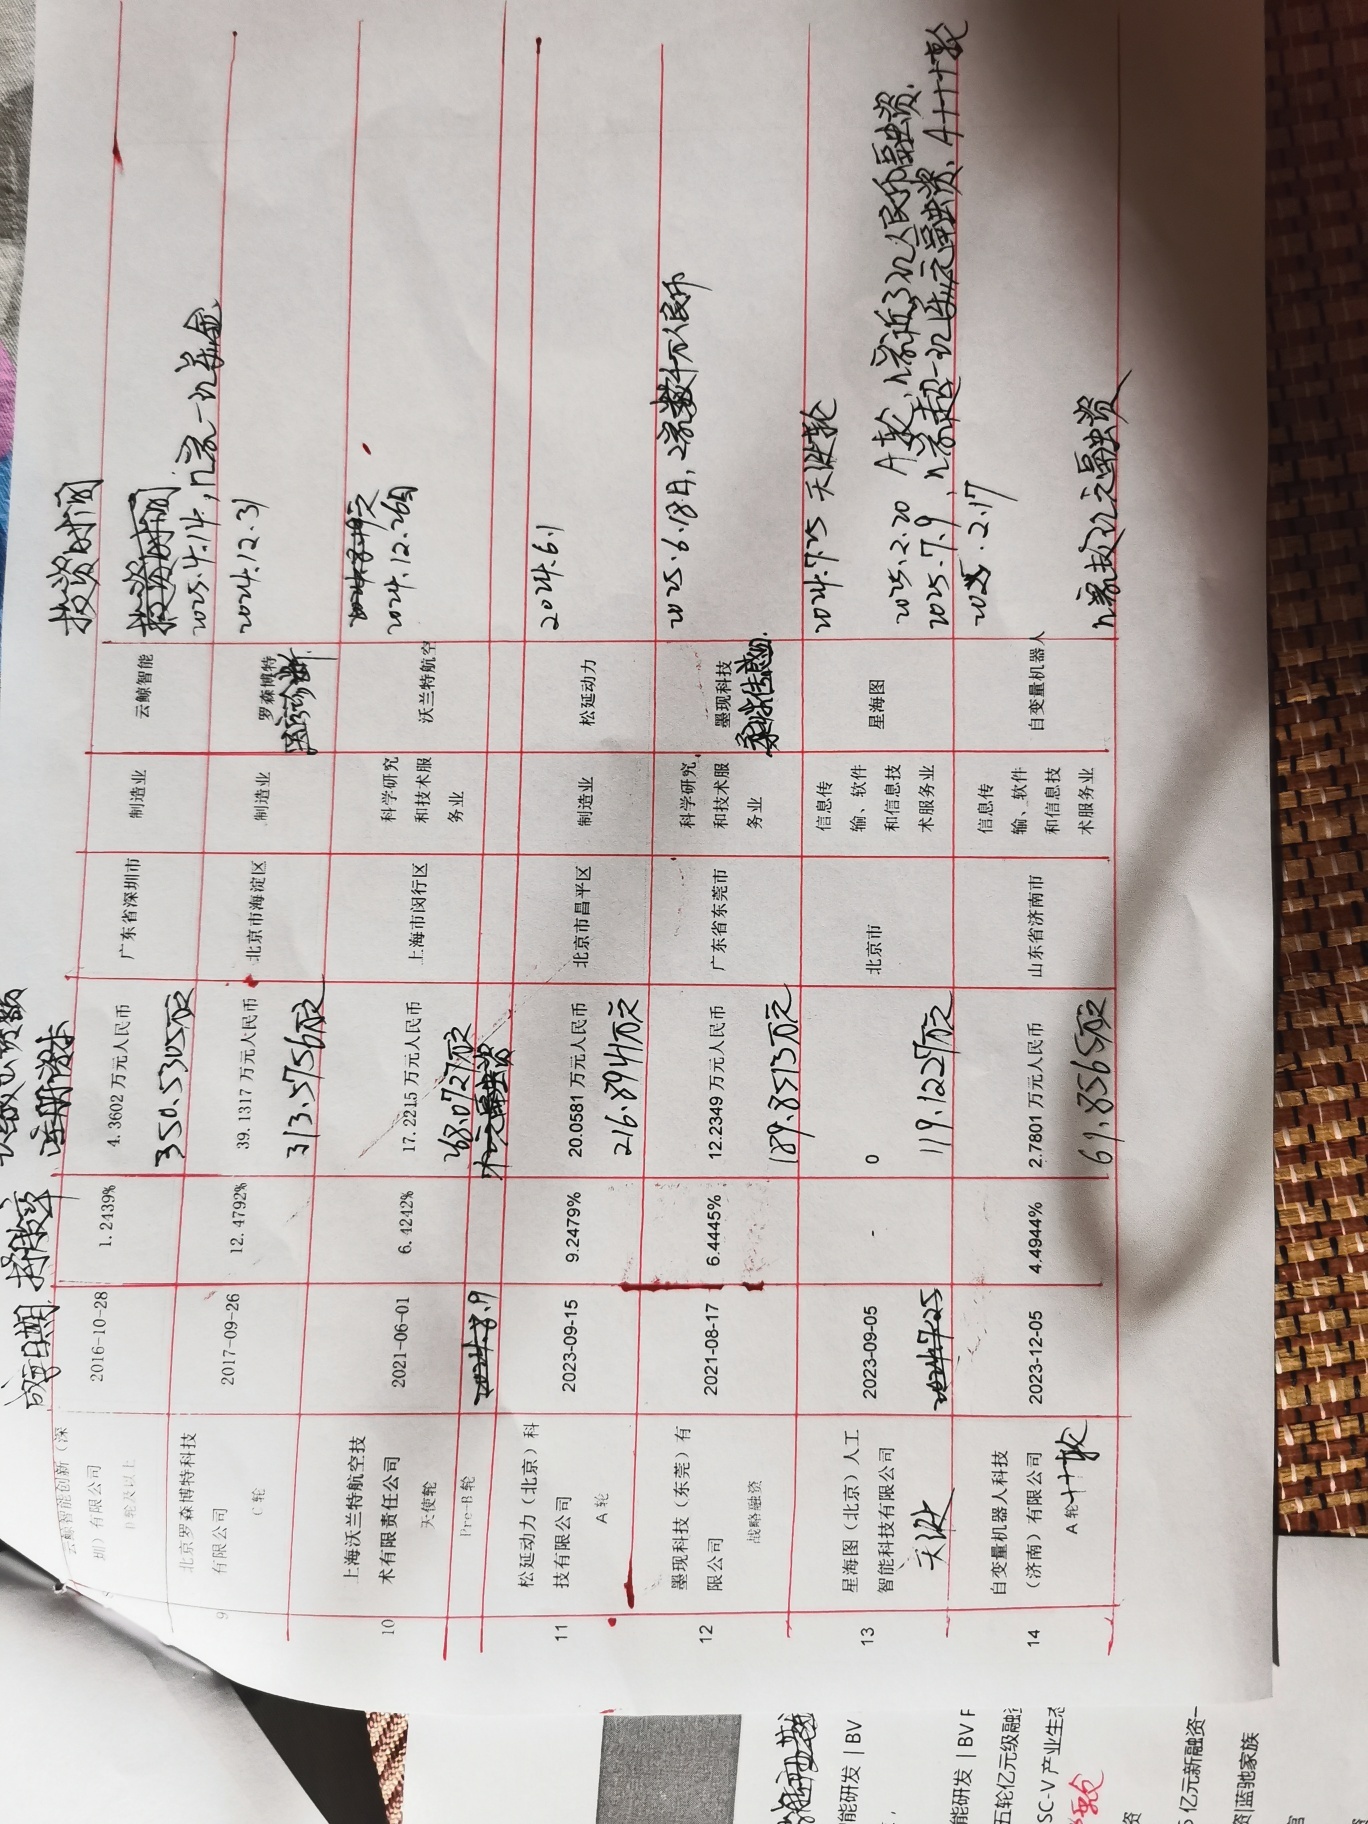 成立日期 持股率 注册资本 投资时间
云鲸智能创新（深
圳）有限公司
B轮及以上
2016-10-28
1.2439%
4.3602 万元人民币
350.5305万元
广东省深圳市
制造业
云鲸智能
投资时间
2025.4.14,
9
北京罗森博特科技
有限公司
C轮
2017-09-26
12.4792%
39.1317 万元人民币
313.5756万元
北京市海淀区
制造业
罗森博特
医疗诊断
2024.12.31
10
上海沃兰特航空技
术有限责任公司
天使轮
Pre-B 轮
2021-06-01
2024.8.9
6.4242%
17.2215 万元人民币
268.0727万元
上海市闵行区
科学研究
和技术服
务业
沃兰特航空
2024.12.26日
11
松延动力（北京）科
技有限公司
A 轮
2023-09-15
9.2479%
20.0581 万元人民币
216.8941万元
北京市昌平区
制造业
松延动力
2024.6.1
12
墨现科技（东莞）有
限公司
战略融资
2021-08-17
6.4445%
12.2349 万元人民币
189.8513万元
广东省东莞市
科学研究
和技术服
务业
墨现科技
柔性传感
2025.6.18日, 2家数千万人民币
13
星海图（北京）人工
智能科技有限公司
天使
2023-09-05
2024.7.25
-
0
119.1227万元
北京市
信息传
输、软件
和信息技
术服务业
星海图
2024.7.25 天使轮
2025.2.20 A轮, 家近3亿人民币融资.
2025.7.9, 家超一亿美元融资、A++++轮
14
自变量机器人科技
（济南）有限公司
A 轮+++轮
2023-12-05
4.4944%
2.7801 万元人民币
61.8565万元
山东省济南市
信息传
输、软件
和信息技
术服务业
自变量机器人
2025.2.17
家数亿元融资
能研发 | BV
能研发 | BV F
五轮亿元级融
SC-V 产业生态
资
亿元新融资一
资|蓝驰家族